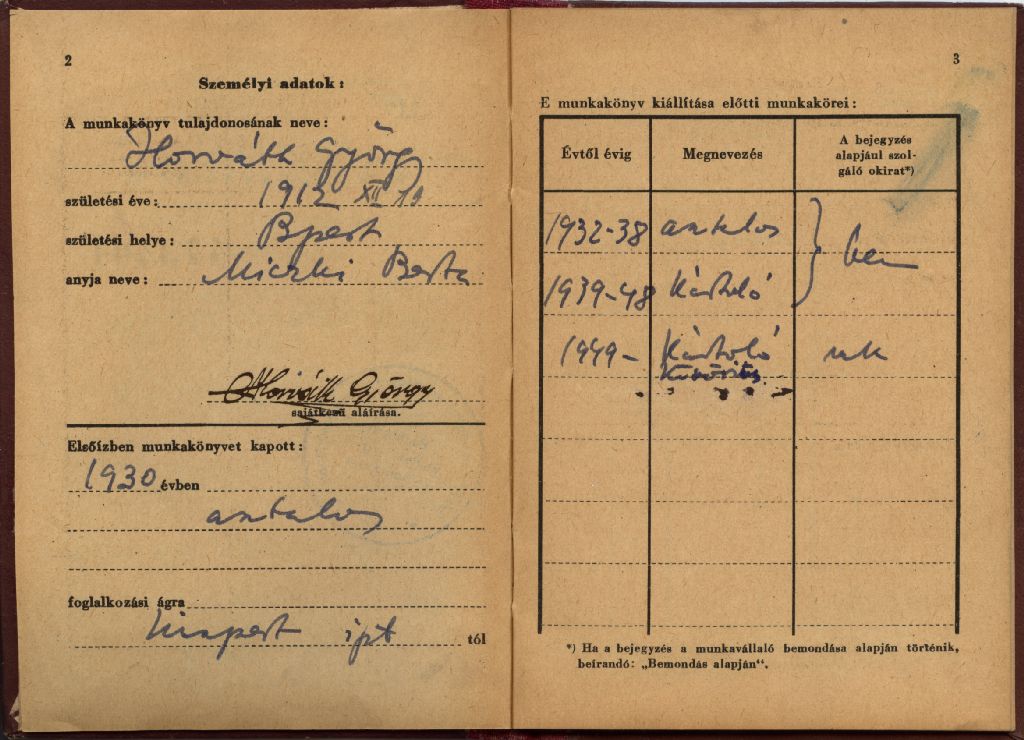 2
Személyi adatok:
A munkakönyv tulajdonosának neve:
Horváth György
születési éve: 1912 XII 19
születési helye: Bpest
anyja neve: Miczki Berta
Horváth György
sajátkezű aláírása.
Elsőízben munkakönyvet kapott:
1930 évben
asztalos
foglalkozási ágra
Kispest ipt tól
3
E munkakönyv kiállítása előtti munkakörei:
Évtől évig Megnevezés A bejegyzés
alapjául szol-
gáló okirat*)
1932-38 asztalos
bem
1939-48 Kártoló
1949- Kártoló mk
*) Ha a bejegyzés a munkavállaló bemondása alapján történik,
beírandó: „Bemondás alapján“.